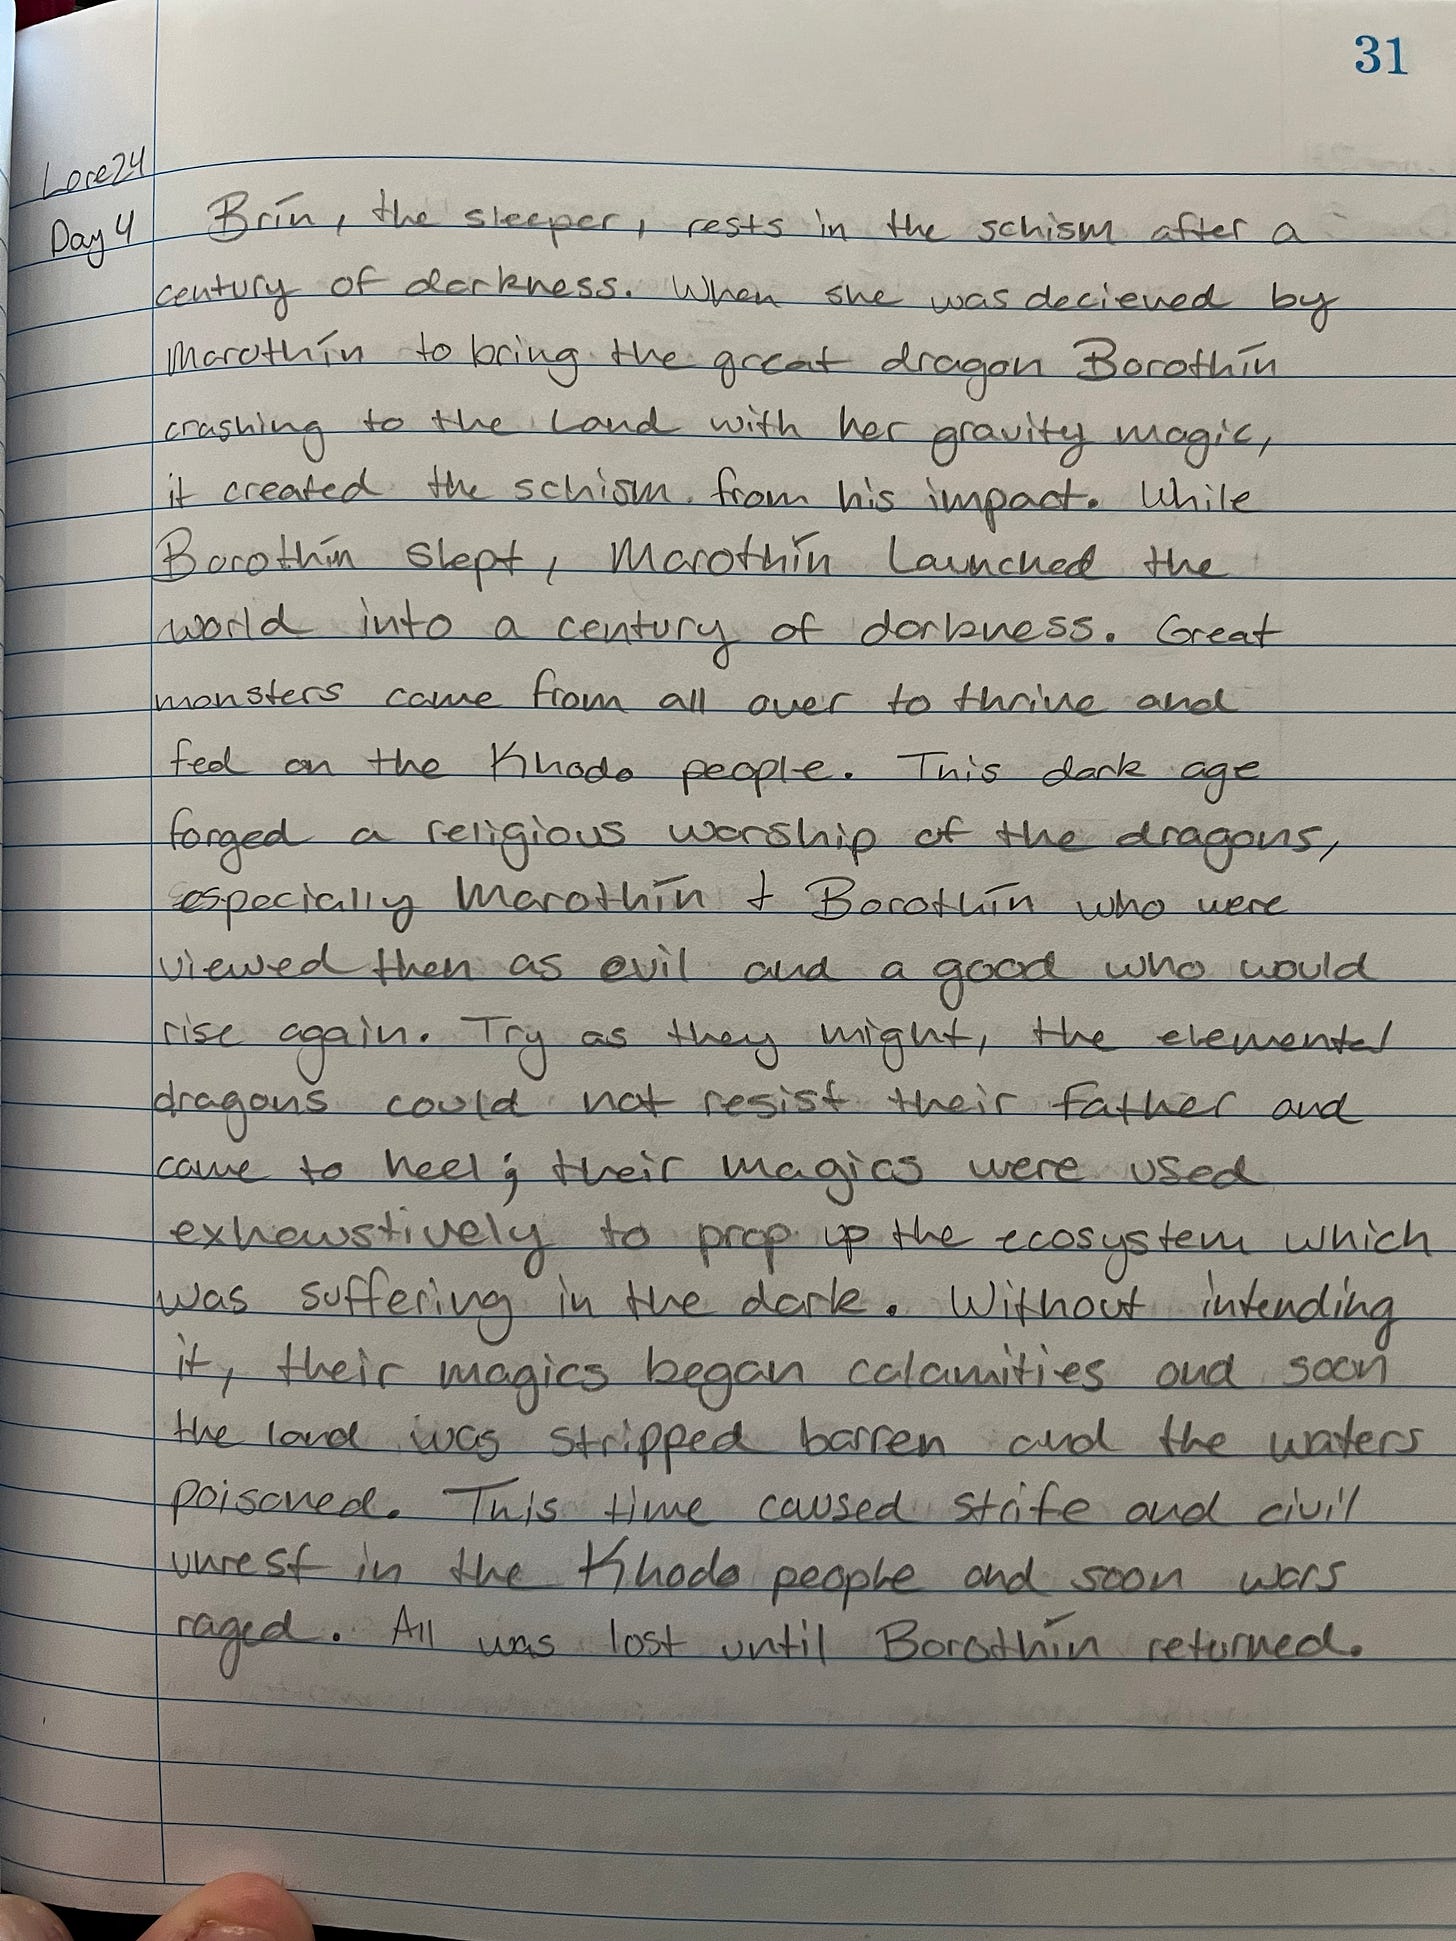 31
Lore24
Day 4
Brīn, the sleeper, rests in the schism after a
century of darkness. When she was decieved by
Marothīn to bring the great dragon Borothīn
crashing to the land with her gravity magic,
it created the schism from his impact. While
Borothīn slept, Marothīn launched the
world into a century of darkness. Great
monsters came from all over to thrive and
fed on the Khodo people. This dark age
forged a religious worship of the dragons,
especially Marothīn + Borothīn who were
viewed then as evil and a good who would
rise again. Try as they might, the elemental
dragons could not resist their father and
came to heel; their magics were used
exhawstively to prop up the ecosystem which
was suffering in the dark. Without intending
it, their magics began calamities and soon
the land was stripped barren and the waters
poisoned. This time caused strife and civil
unrest in the Khodo people and soon wars
raged. All was lost until Borothīn returned.